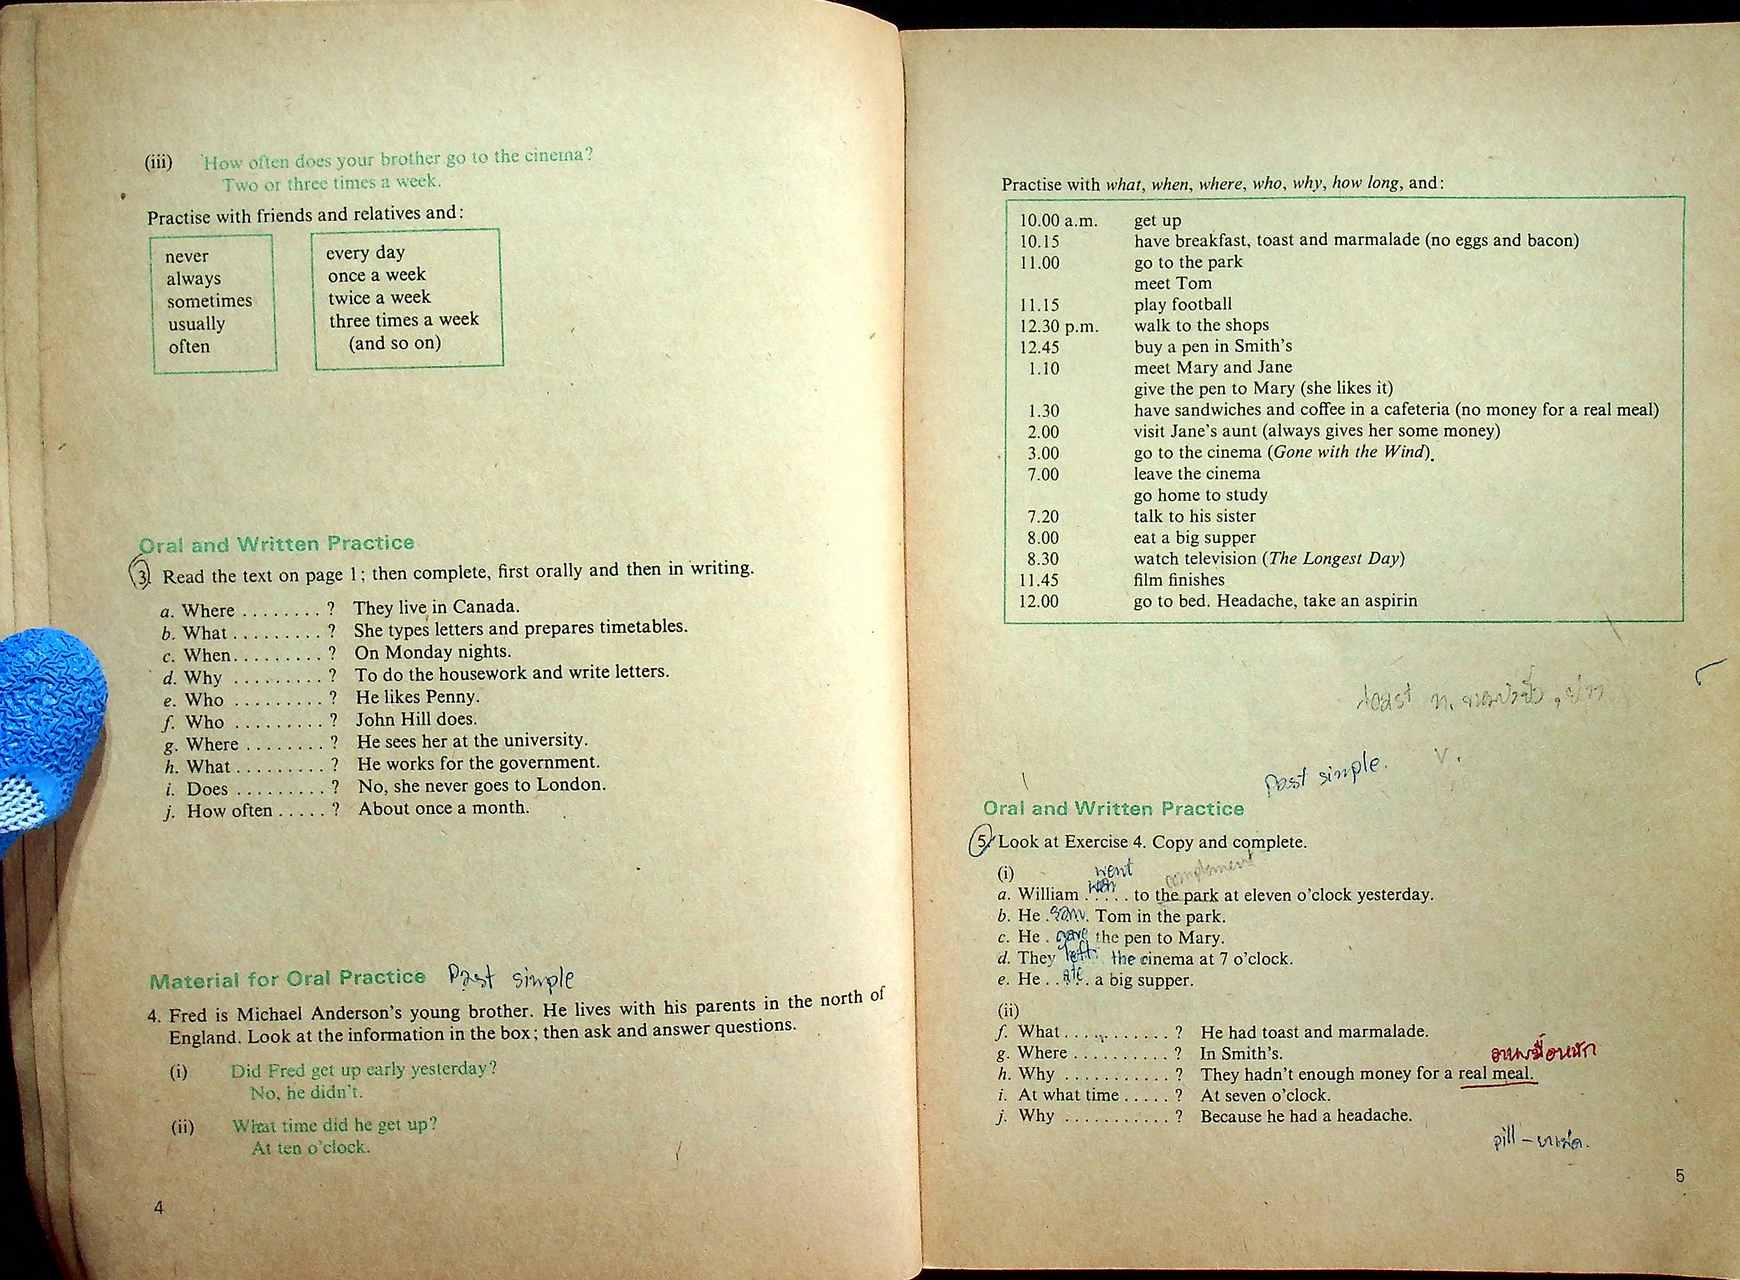 (iii) How often does your brother go to the cinema?
Two or three times a week.
Practise with friends and relatives and:
never
always
sometimes
usually
often
every day
once a week
twice a week
three times a week
(and so on)
Oral and Written Practice
3. Read the text on page 1; then complete, first orally and then in writing.
a. Where ........ ? They live in Canada.
b. What ......... ? She types letters and prepares timetables.
c. When ......... ? On Monday nights.
d. Why ......... ? To do the housework and write letters.
e. Who ......... ? He likes Penny.
f. Who ......... ? John Hill does.
g. Where ........ ? He sees her at the university.
h. What ......... ? He works for the government.
i. Does ......... ? No, she never goes to London.
j. How often ..... ? About once a month.
Material for Oral Practice Past simple
4. Fred is Michael Anderson's young brother. He lives with his parents in the north of
England. Look at the information in the box; then ask and answer questions.
(i) Did Fred get up early yesterday?
No, he didn't.
(ii) What time did he get up?
At ten o'clock.
4
Practise with what, when, where, who, why, how long, and:
10.00 a.m. get up
10.15 have breakfast, toast and marmalade (no eggs and bacon)
11.00 go to the park
meet Tom
11.15 play football
12.30 p.m. walk to the shops
12.45 buy a pen in Smith's
1.10 meet Mary and Jane
give the pen to Mary (she likes it)
1.30 have sandwiches and coffee in a cafeteria (no money for a real meal)
2.00 visit Jane's aunt (always gives her some money)
3.00 go to the cinema (Gone with the Wind).
7.00 leave the cinema
go home to study
7.20 talk to his sister
8.00 eat a big supper
8.30 watch television (The Longest Day)
11.45 film finishes
12.00 go to bed. Headache, take an aspirin
toast n.
v.
Past simple.
Oral and Written Practice
5. Look at Exercise 4. Copy and complete.
(i)
went complement
a. William ..... to the park at eleven o'clock yesterday.
b. He ..... Tom in the park.
c. He . gave the pen to Mary.
d. They left the cinema at 7 o'clock.
e. He .. ate . a big supper.
(ii)
f. What ........... ? He had toast and marmalade.
g. Where .......... ? In Smith's.
อาหารมื้อหนัก
h. Why ........... ? They hadn't enough money for a real meal.
i. At what time ..... ? At seven o'clock.
j. Why ........... ? Because he had a headache.
pill - ยาเม็ด.
5